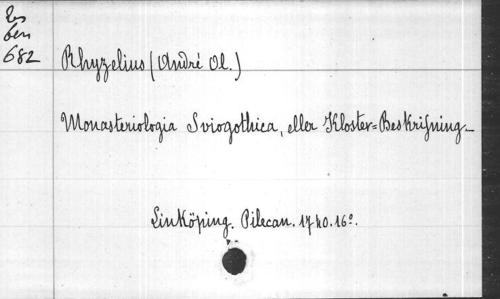 Rés
ben
682
Rhyzelius (André Ol.)
Monasteriologia Sviogothica, eller Kloster=Beskrifning_
Linköping. Pilecan. 1740. 16º.